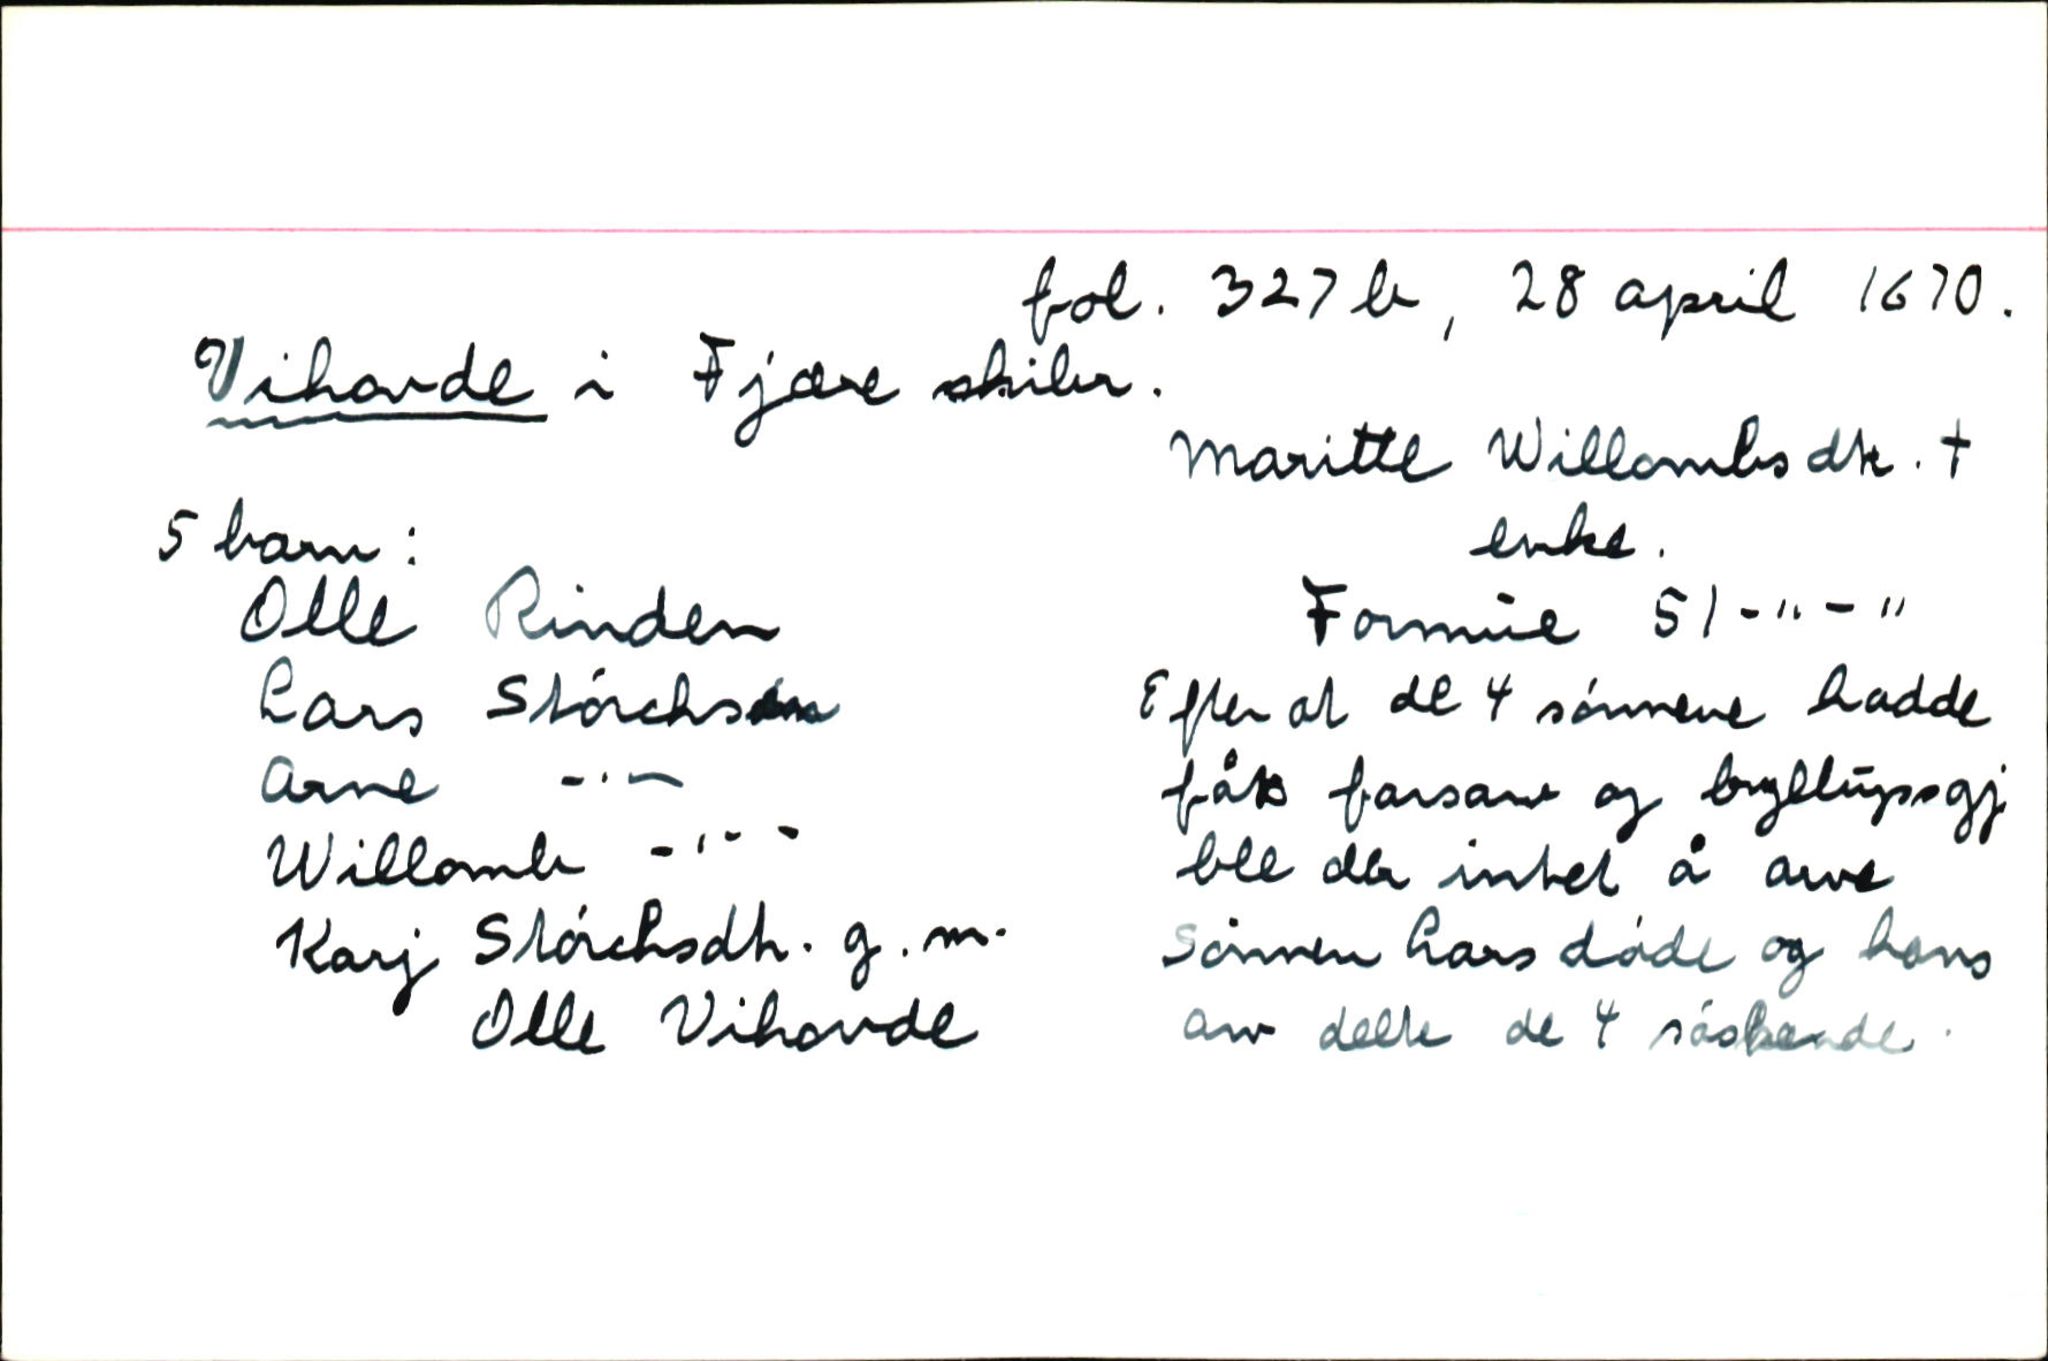 fol. 327 b, 28 april 1670.
Vihovde i Fjære skibr.
Maritte Willombsdtr. †
enke.
5 barn:
Olle Rinden
Formue 51 - " - "
Lars Störchsön
Efter at de 4 sönnene hadde
Arne - " -
fått farsarv og bryllupsgj.
Willomb - " -
ble der intet å arve
Karj Störchsdtr. g. m.
Sönnen Lars döde og hans
Olle Vihovde
arv delte de 4 söskende.